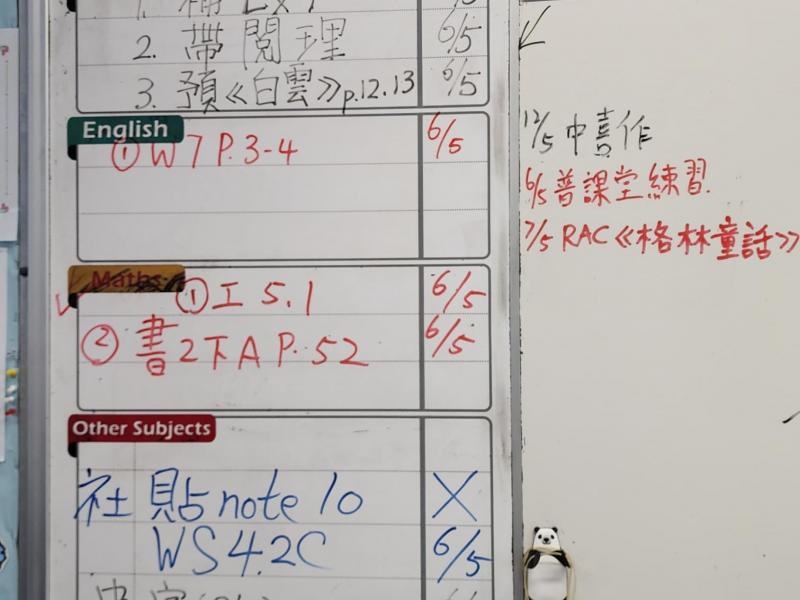 2. 帶閱理 6/5
3. 預《白雲》p.12.13 6/5
English
① W7 P.3-4 6/5
Maths
① 工 5.1 6/5
② 書2下A P.52 6/5
Other Subjects
社 貼note 10 X
WS4.2C 6/5
12/5 中喜作
6/5 普課堂練習
7/5 RAC《格林童話》